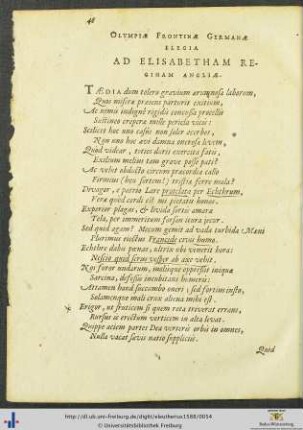 48
OLYMPIÆ FRONTINÆ GERMANÆ
ELEGIA
AD ELISABETHAM RE-
GINAM ANGLIÆ.
TÆDIA dum tolero gravium ærumnosa laborum,
Quos misera præsens parturit exitium,
Ac nimis indignè rigidis concussa procellis
Sustineo crepera mille pericla vicis:
Scilicet hoc uno casso non solor acerbos,
Non uno hoc ævi damna onerosa levem,
Quòd videar, totius duris exercita fatis,
Exilium melius tam grave posse pati?
Ac velut obducto circum præcordia callo
Firmius (heu fortem!) tristia ferre mala?
Devagor, è patrio Lare protelata per Echthrum,
Vera quòd cordi sit mî pietatis honos.
Experior plagas, & livida sortis amara
Tela, per immeritam sæpius icta
Sed quid agam? Mecum gemit ad vada turbida Mœni
Plurimus eiectus Francide civis humo.
Echthro dabis pœnas, ultrix ubi venerit hora:
Nescio quid serus vesper ab axe vehit.
Nec foror nudarum, multisque oppressit iniquæ
Sarcina, defessis incubitans humeris:
Attamen haud succumbo oneri, sed fortius insto,
Solamenque mali crux aliena mihi est.
Erigor, ut fruticem si quem reta traverat errans,
Rursus is erectum verticem in alta levat.
Quippe aciem partes Dea verterit orbis in omnes,
Nulla vacat sævis natio suppliciis.
Quod
http://dl.ub.uni-freiburg.de/diglit/eleutherius1588/0054
© Universitätsbibliothek Freiburg